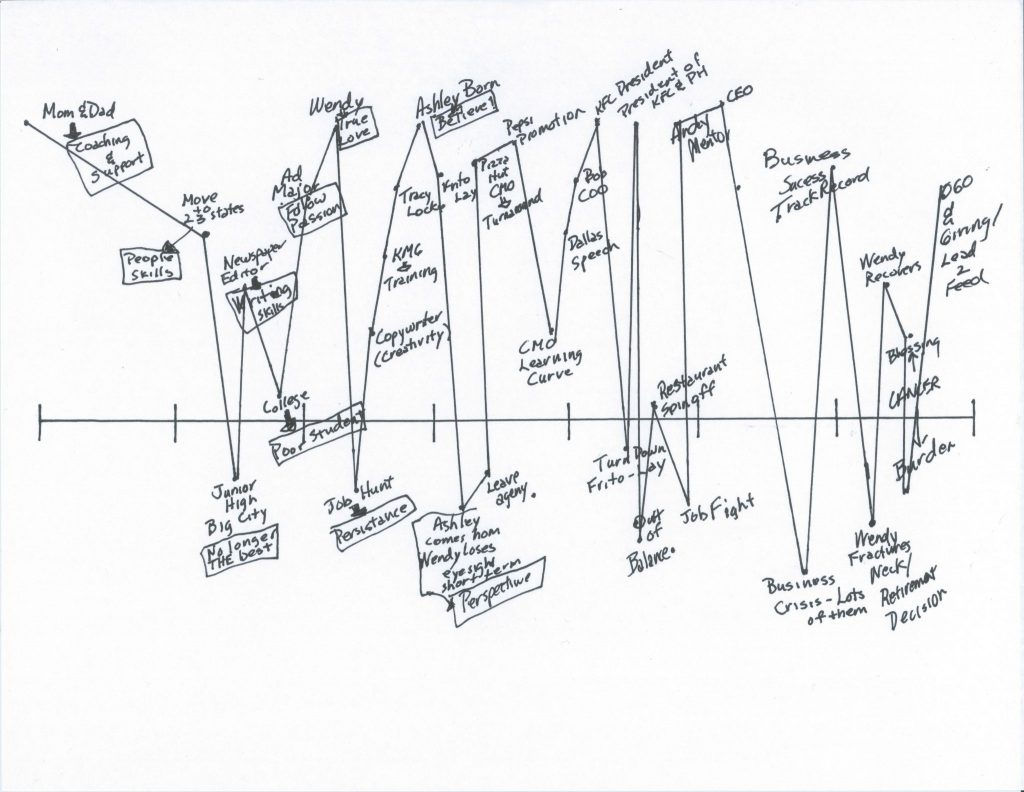 Mom & Dad
Coaching
&
Support
Move
2 to 3 states
People
Skills
Newspaper
Editor
Writing
Skills
Junior
High
Big City
No longer
THE best
College
Poor Student
Ad
Major
Follow
Passion
Wendy
True
Love
Job Hunt
Persistance
Copywriter
(Creativity)
KMG
Training
Tracy
Locke
Ashley Born
Believe!
Frito
Lay
Ashley
comes hom
Wendy loses
eyesight
short-term
Perspective
Leave
ageny.
Pizza
Hut
CMO
Turnaround
Pepsi
Promotion
CMO
Learning
Curve
Dallas
Speech
Bob
COO
KFC President
President of
KFC & PH
Turn Down
Frito-Lay
Out
of
Balance.
Restaurant
Spinoff
Job Fight
Andy
Mentor
CEO
Business
Crisis - Lots
of them
Business
Sucess
Track Record
Wendy
Fractures
Neck/
Retirement
Decision
Wendy
Recovers
Blessing
CANCER
Burder
OGO
Giving/
Lead
2
Feed